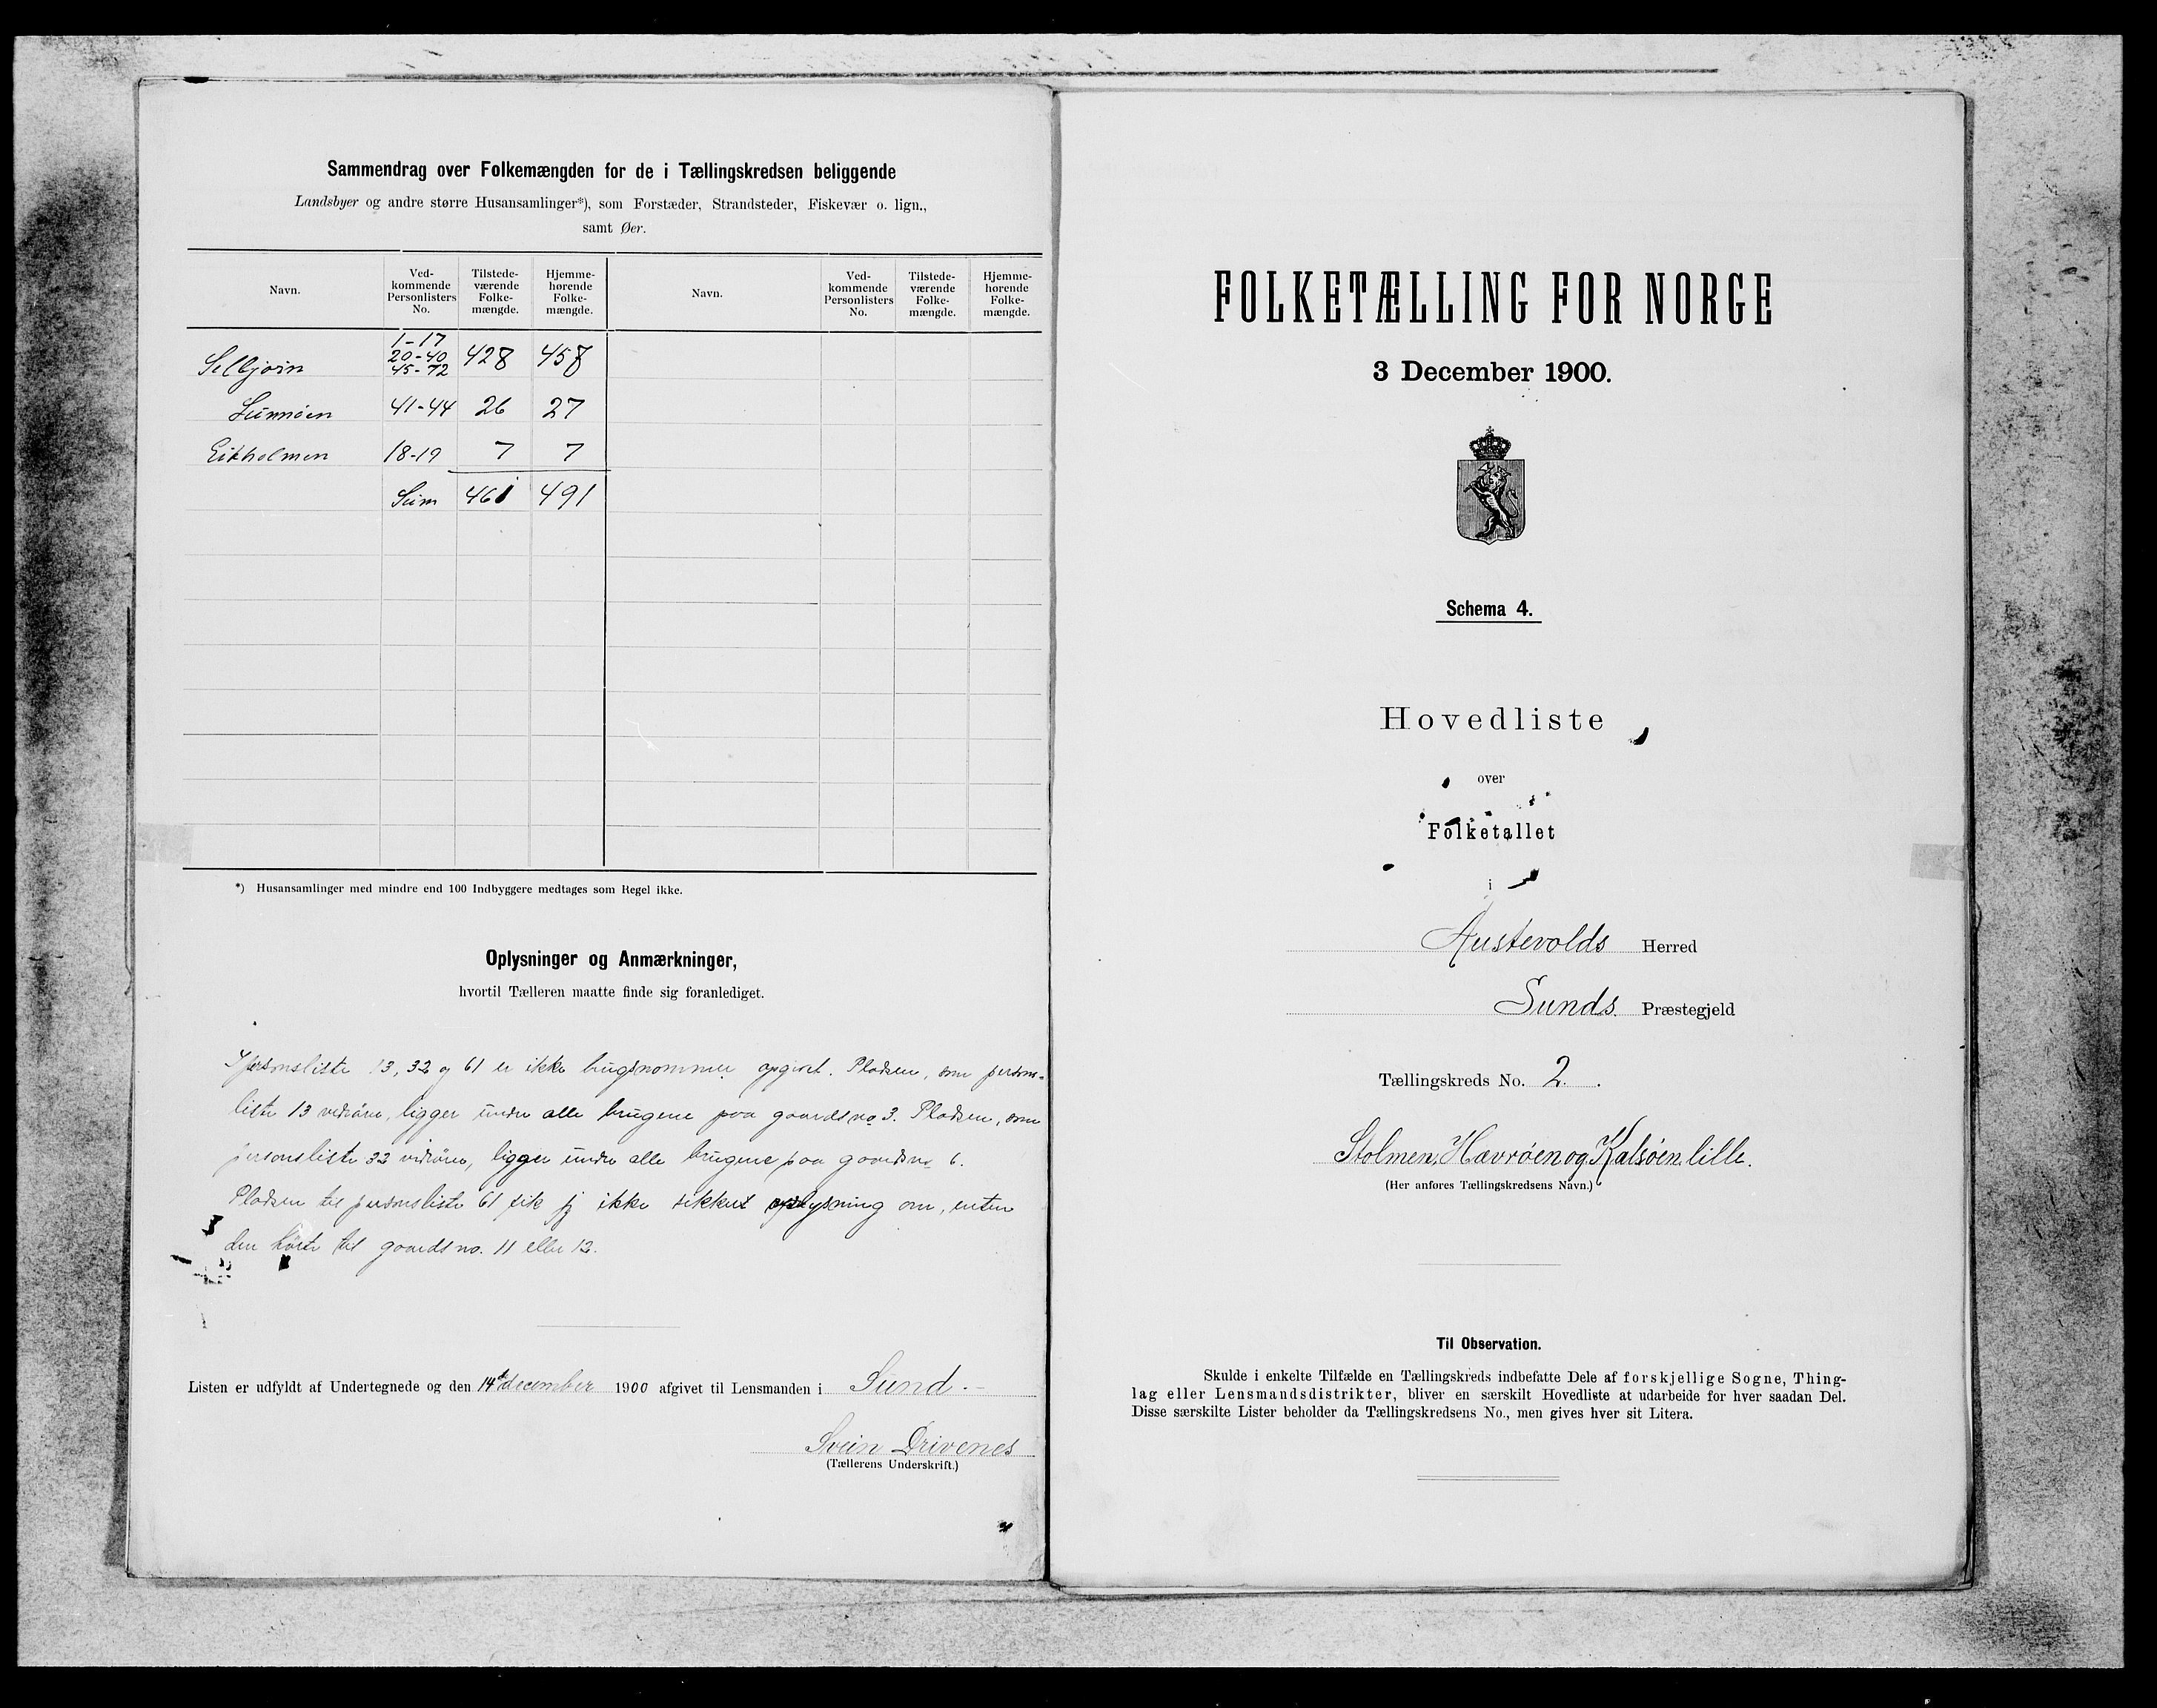 Sammendrag over Folkemængden for de i Tællingskredsen beliggende
Landsbyer og andre større Husansamlinger*), som Forstæder, Strandsteder, Fiskevær o. lign.,
samt Øer.
Navn. Ved-kommende Personlisters No. Tilstede-værende Folke-mængde. Hjemme-hørende Folke-mængde. Navn. Ved-kommende Personlisters No. Tilstede-værende Folke-mængde. Hjemme-hørende Folke-mængde.
1-17
Selbjørn 20-40 428 458
45-72
41-44 26 27
Eikholmen 18-19 7 7
Sum 461 491
*) Husansamlinger med mindre end 100 Indbyggere medtages som Regel ikke.
Oplysninger og Anmærkninger,
hvortil Tælleren maatte finde sig foranlediget.
I personsliste 13, 32 og 61 er ikke brugsnommer opgivet. Pladsen, som persons-
liste 13 vedrører, ligger under alle brugene paa gaardsno 3. Pladsen, som
personsliste 32 vedrører, ligger under alle brugene paa gaardsno 6.
Pladsen til personsliste 61 fik jeg ikke sikker oplysning om, enten
den hørte til gaardsno. 11 eller 12.
Listen er udfyldt af Undertegnede og den 14de december 1900 afgivet til Lensmanden i Sund.
Svein Drivenes
(Tællerens Underskrift.)
FOLKETÆLLING FOR NORGE
3 December 1900.
Schema 4.
Hovedliste
over
Folketallet
i
Austevolds Herred
Sunds. Præstegjeld
Tællingskreds No. 2.
Stolmen, Havrøen og Kalsøen lille.
(Her anføres Tællingskredsens Navn.)
Til Observation.
Skulde i enkelte Tilfælde en Tællingskreds indbefatte Dele af forskjellige Sogne, Thing-
lag eller Lensmandsdistrikter, bliver en særskilt Hovedliste at udarbeide for hver saadan Del.
Disse særskilte Lister beholder da Tællingskredsens No., men gives hver sit Litera.